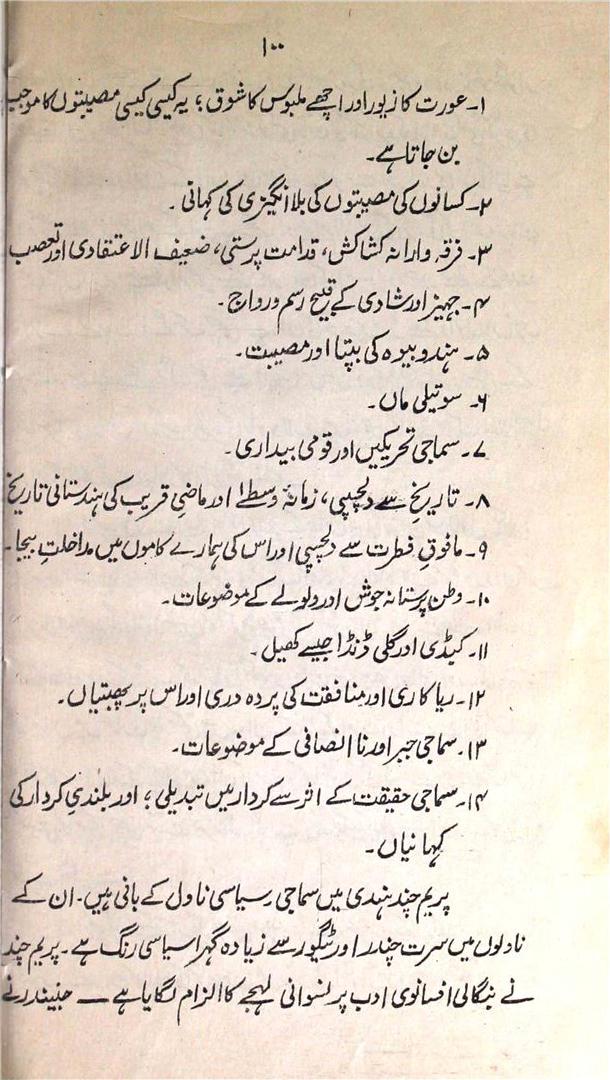 ۱۰۰
۱۔ عورت کا زیور اور اچھے ملبوس کا شوق؛ یہ کیسی کیسی مصیبتوں کا موجب
بن جاتا ہے۔
۲۔ کسانوں کی مصیبتوں کی بلا انگیزی کی کہانی۔
۳۔ فرقہ وارانہ کشاکش، قدامت پرستی، ضعیف الاعتقادی اور تعصب
۴۔ جہیز اور شادی کے قبیح رسم و رواج۔
۵۔ ہندو بیوہ کی بپتا اور مصیبت۔
۶۔ سوتیلی ماں۔
۷۔ سماجی تحریکیں اور قومی بیداری۔
۸۔ تاریخ سے دلچسپی، زمانۂ وسطےٰ اور ماضیِ قریب کی ہندستانی تاریخ
۹۔ مافوقِ فطرت سے دلچسپی اور اس کی ہمارے کاموں میں مداخلتِ بیجا۔
۱۰۔ وطن پرستانہ جوش اور ولولے کے موضوعات۔
۱۱۔ کبڈی اور گلی ڈنڈا جیسے کھیل۔
۱۲۔ ریاکاری اور منافقت کی پردہ دری اور اس پر پھبتیاں۔
۱۳۔ سماجی جبر اور ناانصافی کے موضوعات۔
۱۴۔ سماجی حقیقت کے اثر سے کردار میں تبدیلی؛ اور بلندیِ کردار کی
کہانیاں۔
پریم چند ہندی میں سماجی رسیاسی ناول کے بانی ہیں۔ ان کے
ناولوں میں سرت چندر اور ٹیگور سے زیادہ گہرا سیاسی رنگ ہے۔ پریم چند
نے بنگالی افسانوی ادب پر نسوانی لہجے کا الزام لگایا ہے — جینیندر نے